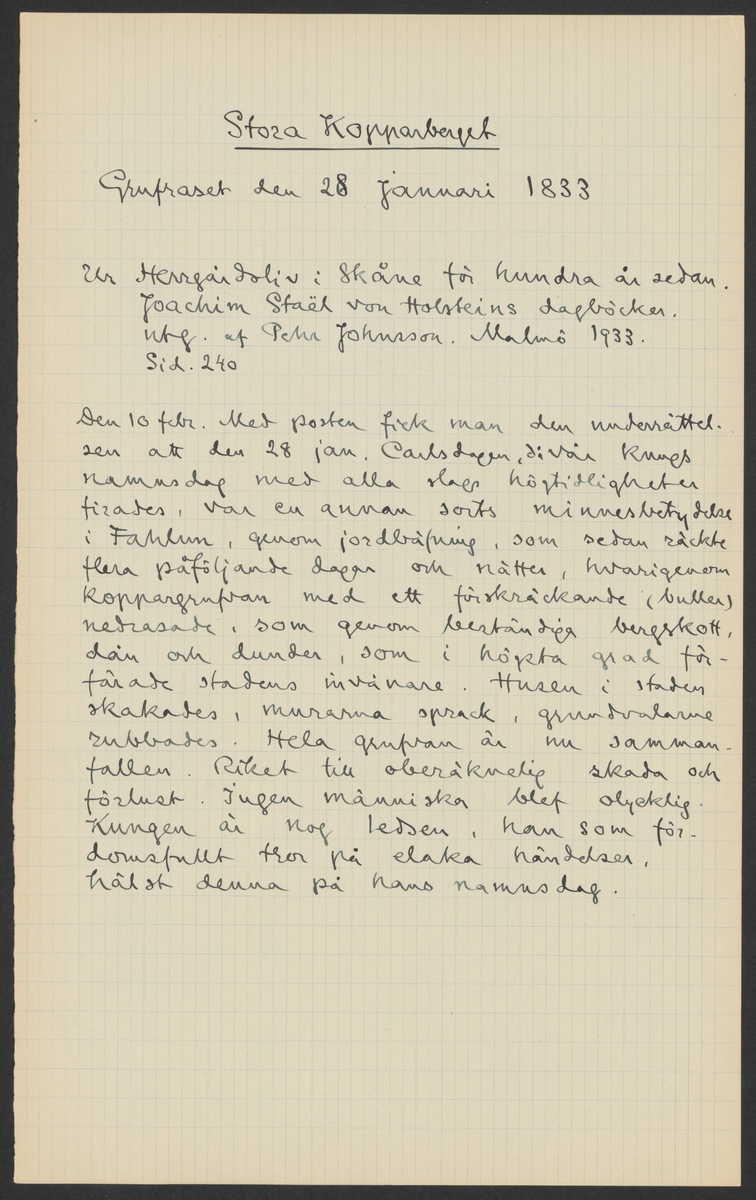 Stora Kopparberget
Grufraset den 28 Januari 1833
Ur Herrgårdsliv i Skåne för hundra år sedan.
Joachim Staël von Holsteins dagböcker.
utg. af Pehr Johnsson. Malmö 1933.
Sid. 240
Den 10 febr. Med posten fick man den underrättel-
sen att den 28 jan. Carlsdagen, då vår kungs
namnsdag med alla slags högtidligheter
firades, var en annan sorts minnesbetydelse
i Fahlun, genom jordbäfning, som sedan räckte
flera påföljande dagar och nätter, hvarigenom
koppargrufvan med ett förskräckande (buller)
nedrasade, som genom beständiga bergskott,
dån och dunder, som i högsta grad för-
färade stadens invånare. Husen i staden
skakades, murarna sprack, grundvalarne
rubbades. Hela grufvan är nu samman-
fallen. Riket till oberäknelig skada och
förlust. Ingen människa blef olycklig.
Kungen är nog ledsen, han som för-
domsfullt tror på elaka händelser,
hälst denna på hans namnsdag.